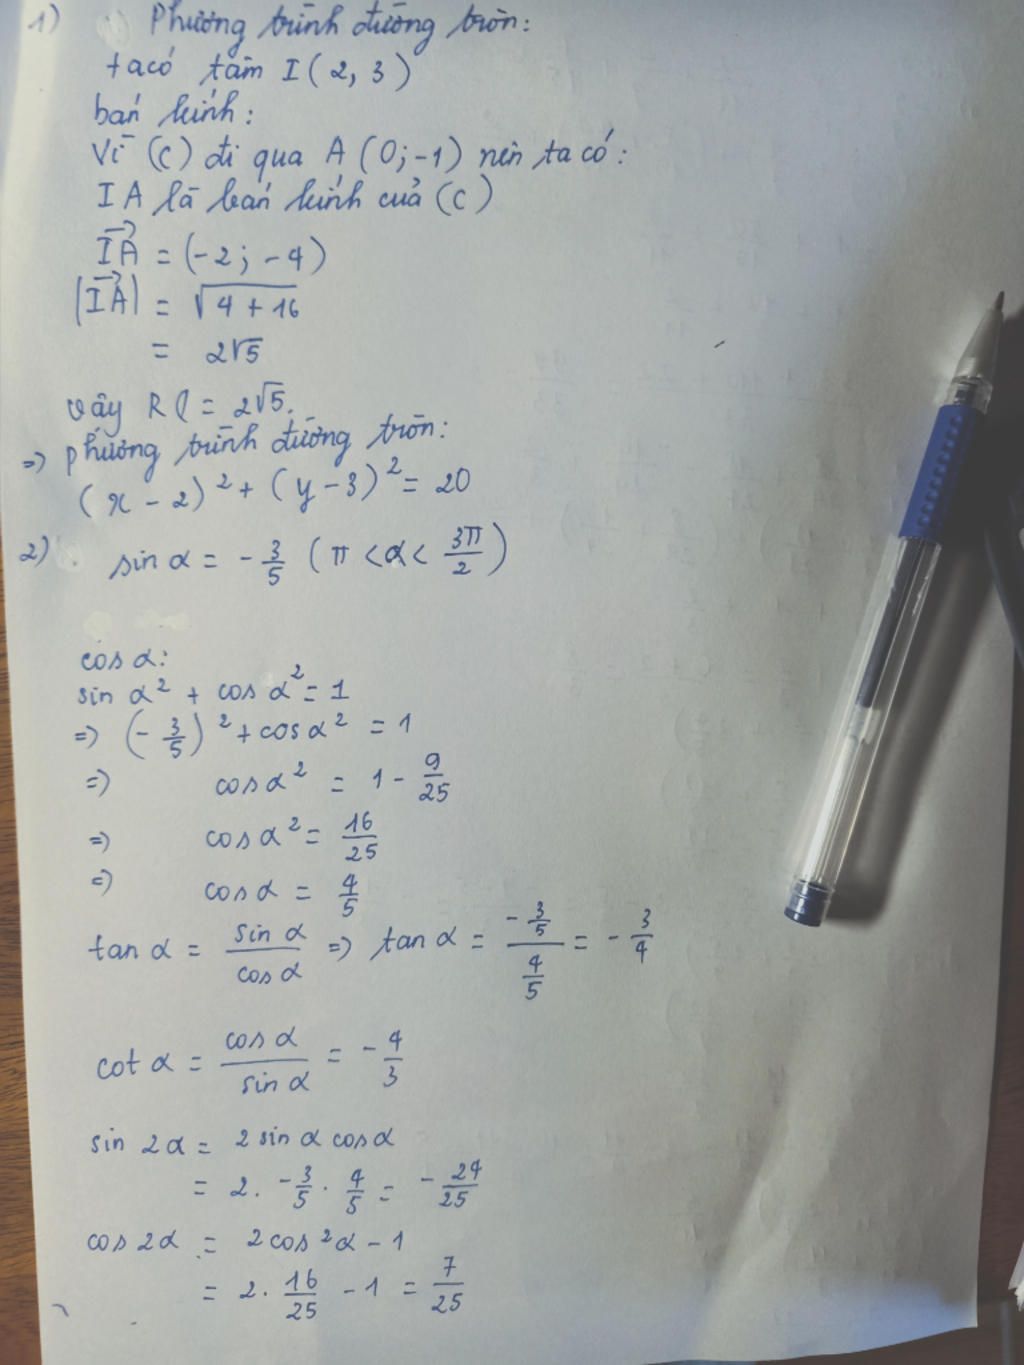 1) Phương trình đường tròn:
ta có tâm I (2, 3)
bán kính:
Vì (C) đi qua A (0; -1) nên ta có:
IA là bán kính của (C)
$\overrightarrow{IA}$ = (-2; -4)
|$\overrightarrow{IA}$| = √(4 + 16)
= 2√5
Vậy R ( = 2√5.
=> phương trình đường tròn:
(x - 2)² + (y - 3)² = 20
2) sin α = - 3/5 (π < α < 3π/2)
cos α:
sin α² + cos α² = 1
=> (- 3/5)² + cos α² = 1
=> cos α² = 1 - 9/25
=> cos α² = 16/25
=> cos α = 4/5
tan α = sin α / cos α => tan α = (- 3/5) / (4/5) = - 3/4
cot α = cos α / sin α = - 4/3
sin 2α = 2 sin α cos α
= 2. - 3/5 . 4/5 = - 24/25
cos 2α = 2cos²α - 1
= 2. 16/25 - 1 = 7/25